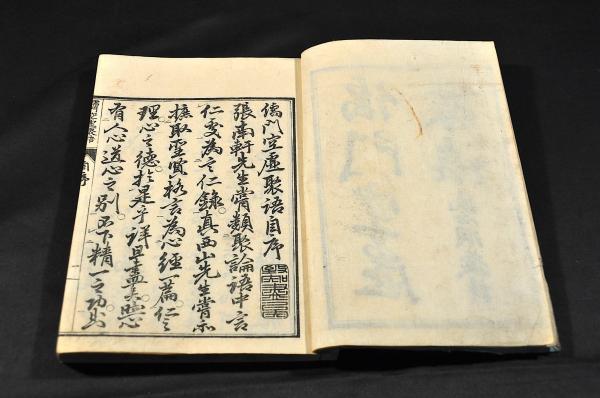 儒門空虛聚語自序
張南軒先生嘗類聚論語中言
仁處為言仁錄真西山先生嘗亦
摭取聖賢格言為心經一篇仁之
理心之德於是乎詳且盡矣然心
有人心道心之別不下精一之功
儒門空虛聚語 自序